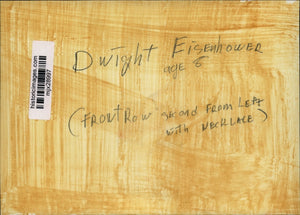 Dwight Eisenhower
age 6
(Front Row second from left
with necklace)
historicimages.com
mpx28597